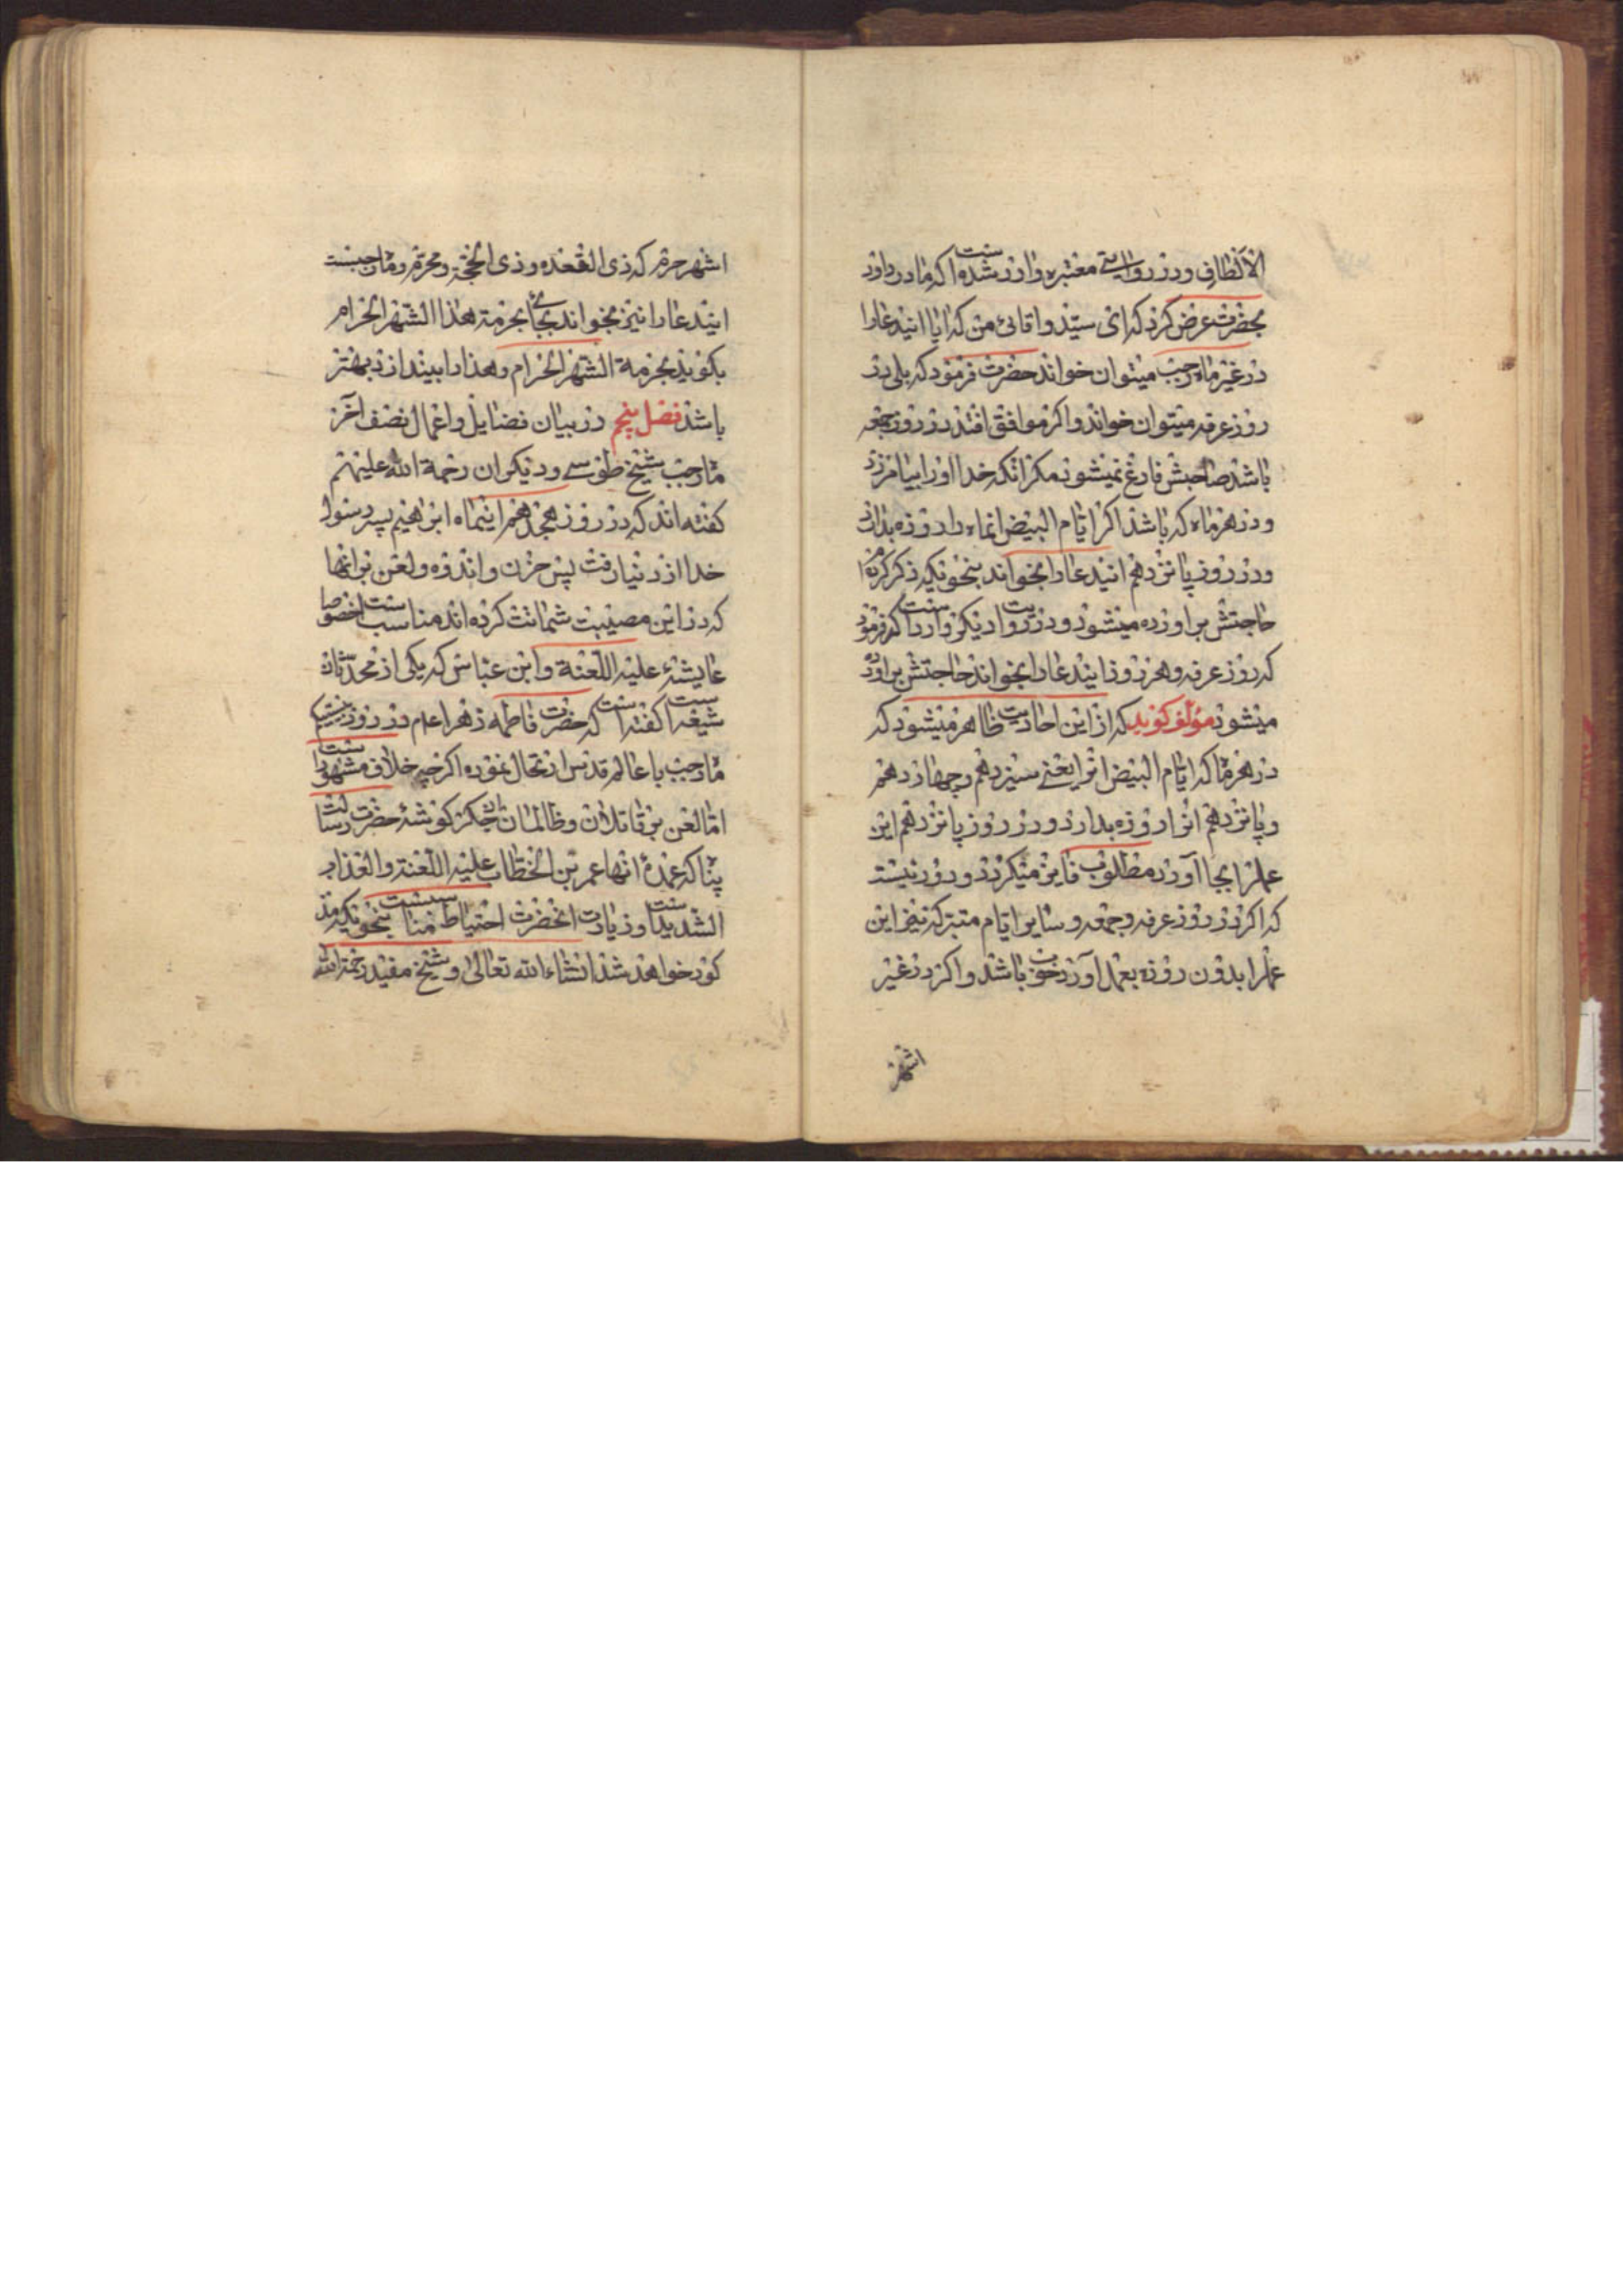 الالطاف و در روایتی معتبره وارد شده است که مادر داود
بحضرت عرض کرد که ای سیّد و اقائی من که ایا ایندعا را
در غیر ماه رجب میتوان خواند حضرت فرمود که بلی در
روز عرفه میتوان خواند و اکر موافق افتد در روز جمعه
باشد صاحبش فارغ نمیشود مکر انکه خدا او را بیامرزد
و در هر ماه که باشد اکر ایّام البیض انماه را روزه بدارد
و در روز پانزدهم ایندعا را بخواند بنحویکه ذکر کرده
حاجتش براورده میشود و در روایت دیکر وارد است که فرمود
که روز عرفه و هر روز ایندعا را بخواند حاجتش براورده
میشود مؤلف کوید که از این احادیث ظاهر میشود که
در هر ما که ایام البیض انرا یعنی سیزدهم و چهاردهم
و پانزدهم انرا روزه بدارد و در روز پانزدهم این
عملرا بجا آورد مطلوب فایز میکردد و دور نیست
که اکر در روز عرفه و جمعه و سایر ایّام متبرکه نیز این
عملرا بدون روزه بعمل آورد خوب باشد و اکر در غیر
اشهر
اشهر حرم که ذی القعده و ذی الحجّه و محرّم و ماه رجبست
ایندعا را نیز بخواند بجای بحرمة هذا الشّهر الحرام
بکوید بحرمة الشهر الحرام و هذا را بیندازد بهتر
باشد فصل پنجم در بیان فضایل و اعمال نصف آخر
ماه رجب شیخ طوسی و دیکران رحمة الله علیهم
کفته اند که در روز هجدهم اینماه ابرهیم پسر رسول
خدا از دنیا رفت پس حزن و اندوه و لعن بر انها
که در این مصیبت شماتت کرده اند مناسب است خصوصا
عایشهٔ علیه اللّعنة و ابن عیاش که یکی از محدّثان
شیعه است کفته است که حضرت فاطمه زهرا ع م در روز بیست یکم
ماه رجب با عالم قدس ارتحال نموده اکر چه خلاف مشهور است
امّا لعن بر قاتلان و ظالمان ان جکر کوشهٔ حضرت رسالت
پناه که عمدهٔ انها عمر بن الخطّاب علیه اللّعنة و العذاب
الشدید است و زیارت انحضرت احتیاط مناسبست بنحویکه مذ
کور خواهد شد انشاء الله تعالی و شیخ مفید رحمة الله